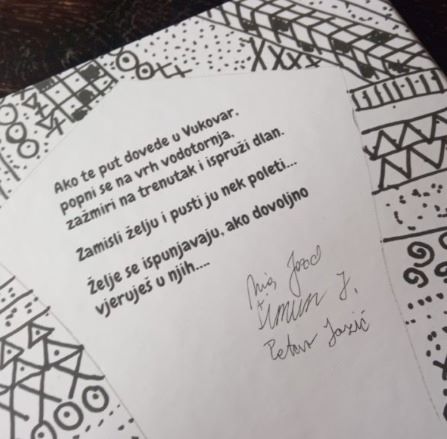 Ako te put dovede u Vukovar,
popni se na vrh vodotornja,
zažmiri na trenutak i ispruži dlan.
Zamisli želju i pusti ju nek poleti...
Želje se ispunjavaju, ako dovoljno
vjeruješ u njih....
Petar